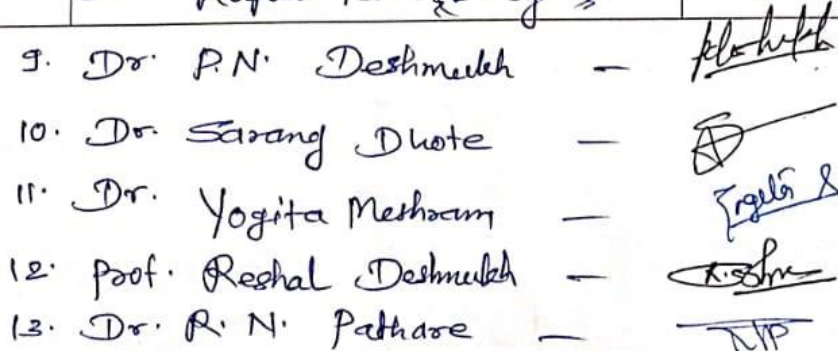 9. Dr. P.N. Deshmukh —
10. Dr. Sarang Dhote —
11. Dr. Yogita Meshram —
12. Prof. Reshal Deshmukh —
13. Dr. R. N. Pathare —